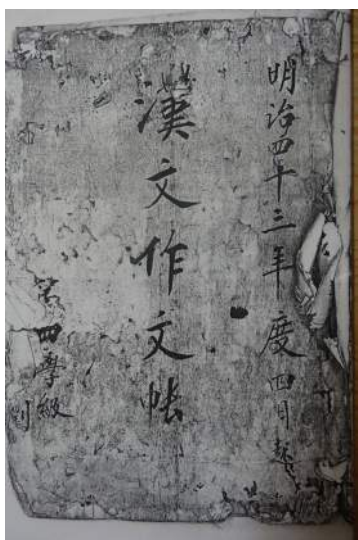 明治四十三年度四月起
漢文作文帳
第四學級